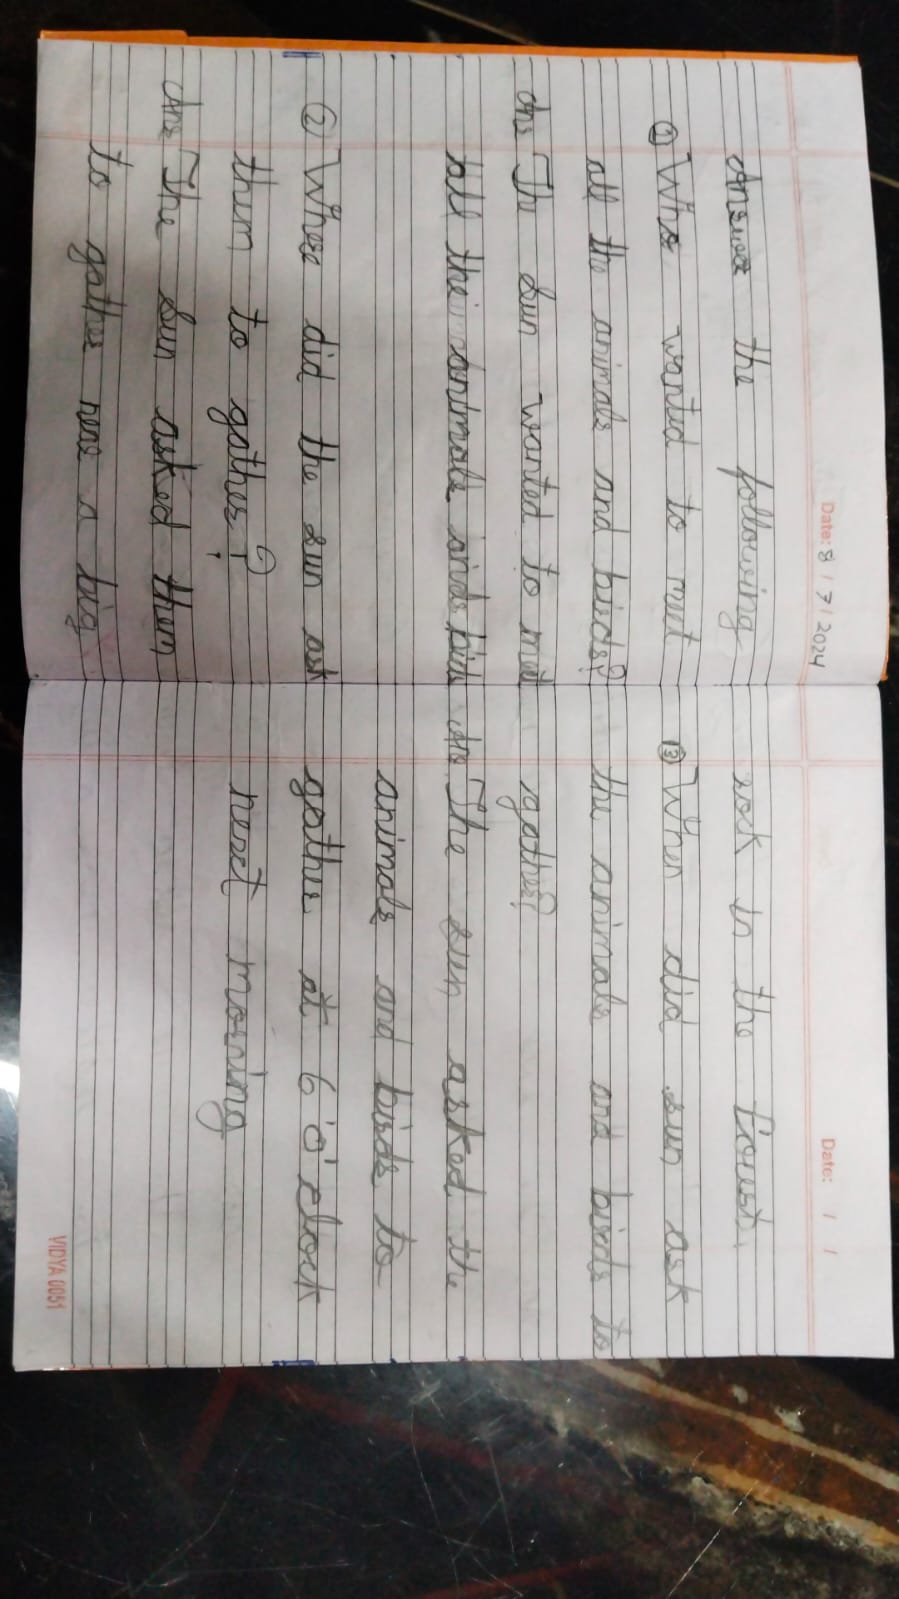 Date: 8 / 7 / 2024
Answer the following
① Who wanted to meet
all the animals and birds?
Ans The Sun wanted to meet
all the animals birds
② Where did the sun ask
them to gather?
Ans The Sun asked them
to gather near a big
Date: / /
rock in the forest.
③ When did sun ask
the animals and birds to
gather?
Ans The sun asked the
animals and birds to
gather at 6 o'clock
next morning
VIDYA 0051